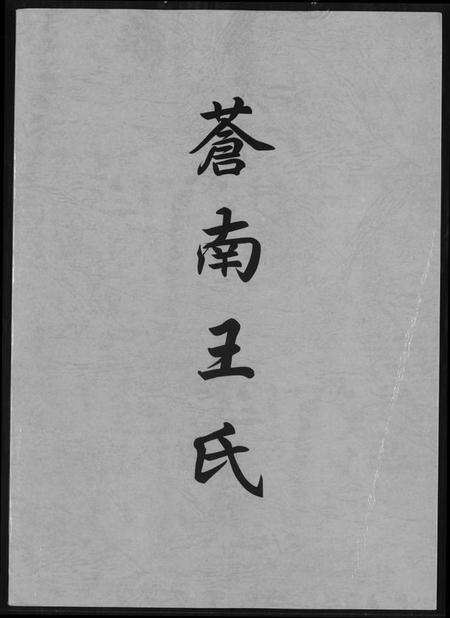 蒼南王氏